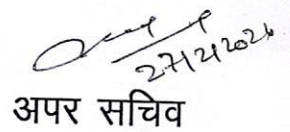 27/2/2026
अपर सचिव